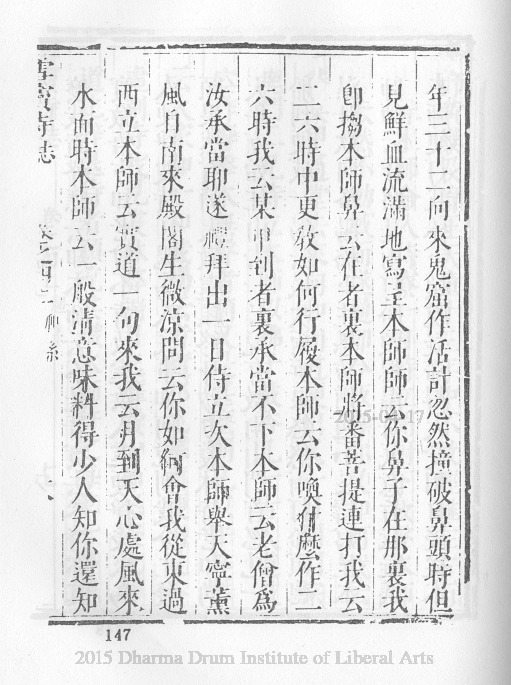 年三十二向來鬼窟作活計忽然撞破鼻頭時但
見鮮血流滿地寫呈本師師云你鼻子在那裏我
卽搊本師鼻云在者裏本師將番菩提連打我云
二六時中更教如何行履本師云你喚什麼作二
六時我云某甲到者裏承當不下本師云老僧爲
汝承當聊遂禮拜出一日侍立次本師舉天寧薰
風自南來殿閣生微涼問云你如何會我從東過
西立本師云實道一句來我云月到天心處風來
水面時本師云一般清意味料得少人知你還知
雪竇寺誌 卷之四
147
2015-04-17
2015 Dharma Drum Institute of Liberal Arts